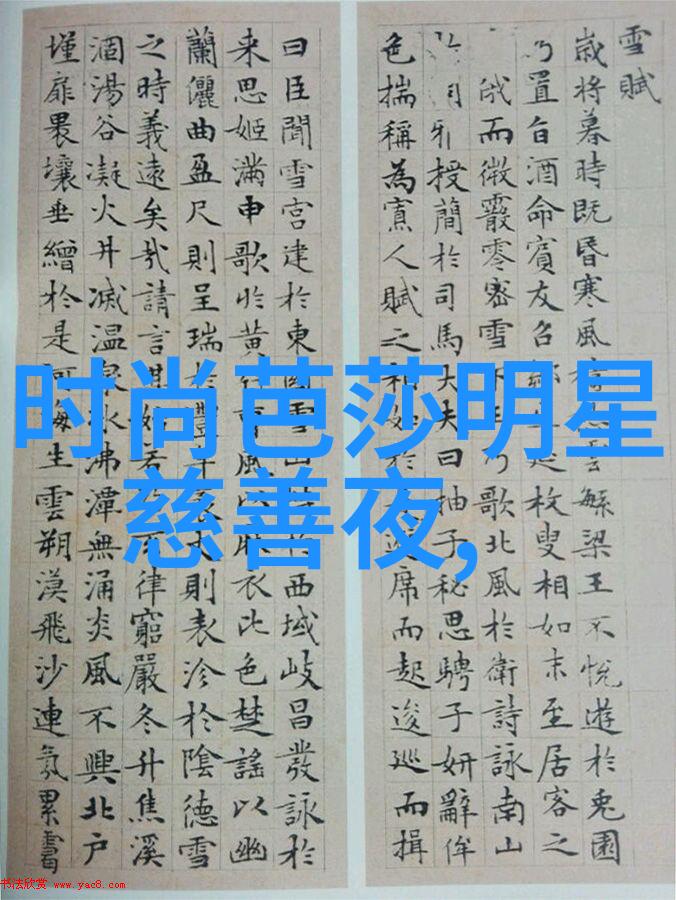 雪賦
歲将暮時既昏寒風雲緐梁王不悅遊於兔園
乃置旨酒命賓友召枚叟相如末至居客之
俄而微霰零密雪下王乃歌北風於衛詩詠南山
雅授簡於司馬大夫曰抽子秘思騁子妍辭侔
色揣稱為寡人賦之相如於避席而起逡巡而揖
曰臣聞雪宮建於東國雪山於西域岐昌發詠於
来思姬滿申歌於黃竹曹風以麻衣比色楚謠以幽
蘭儷曲盈尺則呈瑞於豐年袤丈則表沴於陰德雪
之時義遠矣哉請言其始若律窮嚴冬升焦溪
涸湯谷凝火井滅温泉冰沸潭無涌炎風不興北户
墐扉裸壤垂繒於是河海生雲朔漠飛沙連氛累靄
时尚芭莎明星
慈善夜,
书法欣赏 www.yac8.com